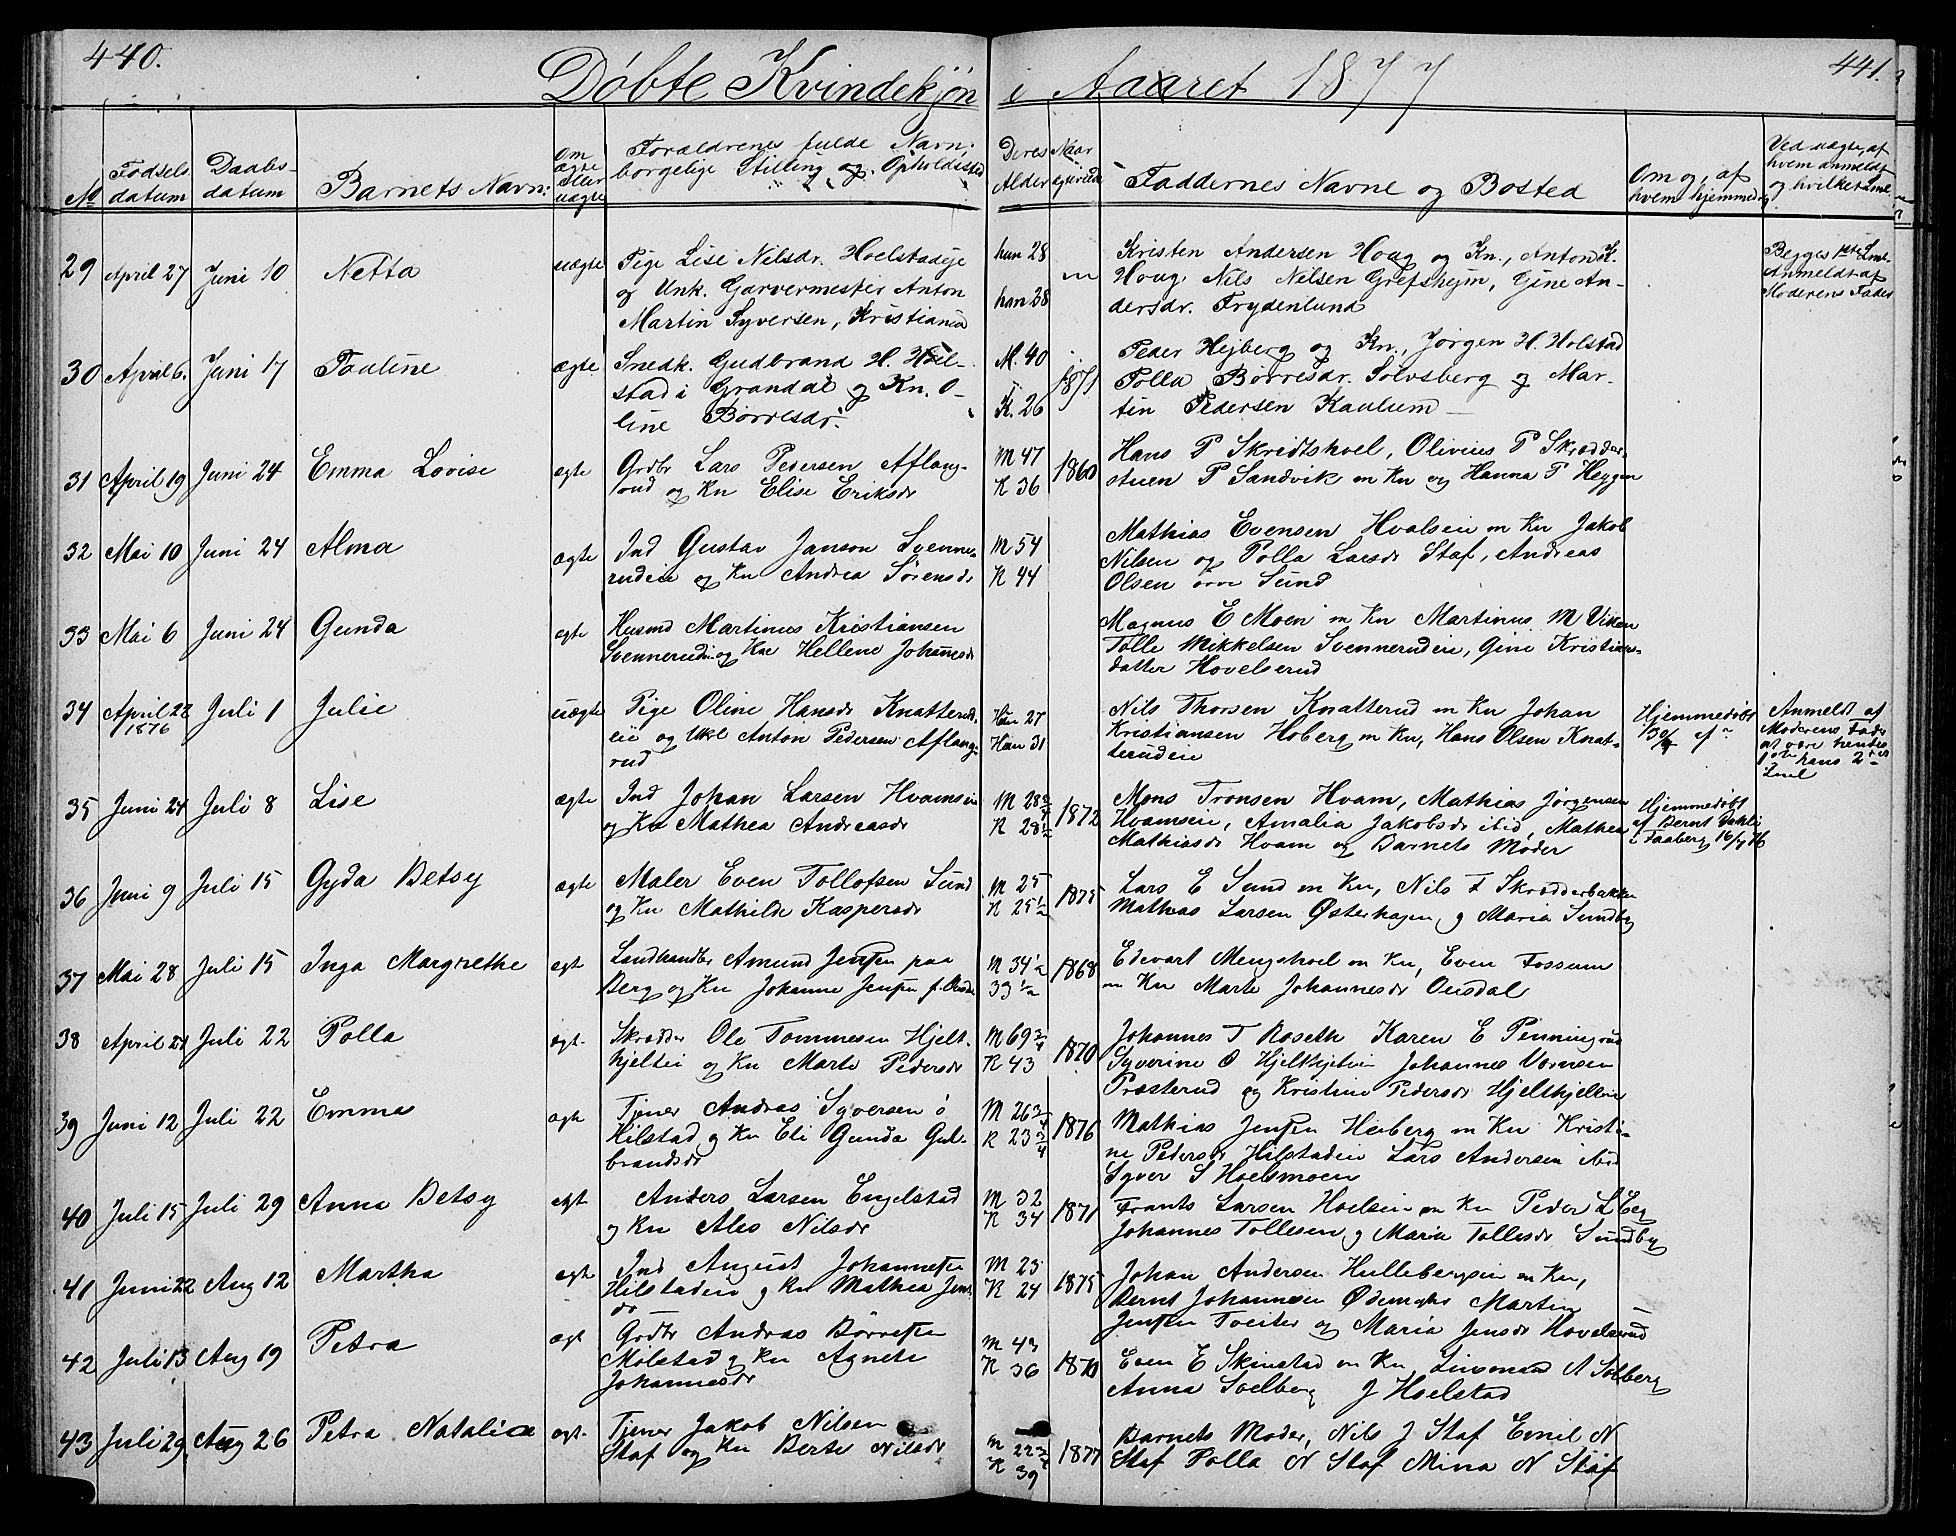 440.
441.
Døbte Kvindekjøn i Aaaret 1877
No
Fødsels
datum
Daabs-
datum
Barnets Navn:
Om
ægte
eller
uægte
Forældrenes fulde Navn,
borgelige Stilling og Opholdssted
Deres
Alder
Naar
Faddernes Navne og Bosted
Om og af
hvem hjemmed.
Ved uægte, af
hvem anmeldt
og hvilket
29 April 27 Juni 10 Netta uægte
Pige Lise Nilsdr. Hoelstadeje
og Unk. Garvermester Anton
Martin Syversen, Kristiania
hun 28
han 28
Kristen Andersen Houg og Kn., Anton K.
Houg, Nils Nilsen Grefsheim, Gine An-
dersdr. Frydenlund
Begges 1ste
Anmeldt af
Moderens Fader
30 April 6. Juni 17 Pauline ægte
Snedk. Gudbrand H. Hoel-
stad i Grandal og Kn. O-
line Børresdr.
M. 40
K. 26
1871
Peder Hejberg og Kn., Jørgen H. Holstad
Polla Børresdr. Solvsberg og Mar-
tin Pedersen Kaulum
31 April 19 Juni 24 Emma Lovise ægte
Grdbr Lars Pedersen Aflang-
rud og Kn Elise Eriksdr
M 47
K 36
1860
Hans P Skridtshoel, Olivius P Skrædder-
stuen P Sandvik m Kn og Hanna P Heggen
32 Mai 10 Juni 24 Alma ægte
Ind Gustav Janson Svenne-
rudeie og Kn Andrea Sørensdr
M 54
K 44
Mathias Evensen Hvalseie m Kn Jakob
Nilsen og Polla Larsdr Staf, Andreas
Olsen øvre Sund
33 Mai 6 Juni 24 Gunda ægte
Husmd Martinus Kristiansen
Svennerud og Kne Hellene Johansdr
Magnus E Moen m Kn Martinus M Viken
Tolle Mikkelsen Svennerudeie, Gine Kristians-
datter Hovelserud
34 April 22 Juli 1 Julie uægte
1876
Pige Oline Hansdr Knatterud-
eie og Ukl Anton Pedersen Aflang-
rud
Hun 27
Han 31
Nils Thorsen Knatterud m Kn Johan
Kristiansen Hoberg m Kn, Hans Olsen Knat-
terudeie
Hjemmedøbt
Anmeldt af
Moderens Fader
at være hendes
1ste hans 2det
35 Juni 24 Juli 8 Lise ægte
Ind Johan Larsen Hvamseie
og Kn Mathea Andreasdr
M 28 3/4
K 28 1/2
1872
Mons Tronsen Hvam, Mathias Jørgensen
Hvamseie, Amalia Jakobsdr ibid, Mathea
Mathiasdr Hvam og Barnets Moder
Hjemmedøbt
af Bernt Dahli
i Faaberg 16/7 76
36 Juni 9 Juli 15 Gyda Betsy ægte
Maler Even Tollofsen Sund
og Kn Mathilde Kaspersdr
M 25
K 25 1/2
1875
Lars E Sund m Kn, Nils T Skrædderbakken
Mathias Larsen Østerhagen, og Maria Sundby
37 Mai 28 Juli 15 Inga Margrethe ægt
Landhandler Amund Jenssen paa
Berg og Kn Johanne Jenssen f.
M 34 1/2
33 1/2
1868
Edevart Mengshoel m Kn, Even Fossum
m Kn Marte Johannesdr Onsdal
38 April 21 Juli 22 Polla ægt.
Skrædder Ole Tommesen Hjelt-
hjeltei og Kn Marte Pedersdr
M 69 3/4
K 43
1870
Johannes T Roseth Karen E Penningrud
Syverine O Hjelthjelteie Johannes
Præsterud og Kristine Pedersdr Hjelthjelleie
39 Juni 12 Juli 22 Emma ægt
Tjener Andras Syversen ø
Hilstad og Kn Eli Gunda Gul-
brandsdr
M 26 3/4
K 23 3/4
1876
Mathias Jenssen Heiberg m Kn Kristi-
ne Pedersdr Hilstadeie Lars Andersen ibid
Syver S Hoelsmoen
40 Juli 15 Juli 29 Anna Betsy ægt
Anders Larsen Engelstad
og Kn Ales Nilsdr
M 32
K 34
1871
Frants Larsen Hoelseie m Kn Peder L Eeg
Johannes Tollesen og Maria Tollesdr Sundby
41 Juni 22 Aug 12 Martha ægt
Ind August Johannessen
Hilstadeie og Kn Mathea Jens-
dr
M 23
K 24
1875
Johan Andersen Hullebergeie m Kn,
Bernt Johannesen Ødemark Martin
Jenssen Tveiter og Maria Jensdr Hovelsrud
42 Juli 13 Aug 19 Petra ægt
Grdbr Andras Børresen
Mølstad og Kn Agnete
Johannesdr
M 43
K 36
1870
Even E Skinstad m Kn Simmand A Solberg
Anna Soelberg J Hoelstad
43 Juli 29 Aug 26 Petra Natalia ægt.
Tjener Jakob Nilsen
Staf og Kn Berte Nilsdr
M 22 3/4
K 39
1877
Barnets Moder, Nils J Staf Emil N
Staf Polla N Staf Mina N Staf